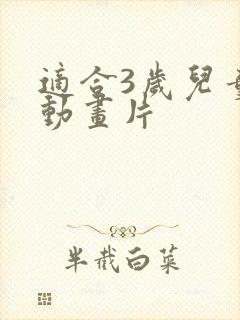 適合3歲兒童
動畫片
半截白菜